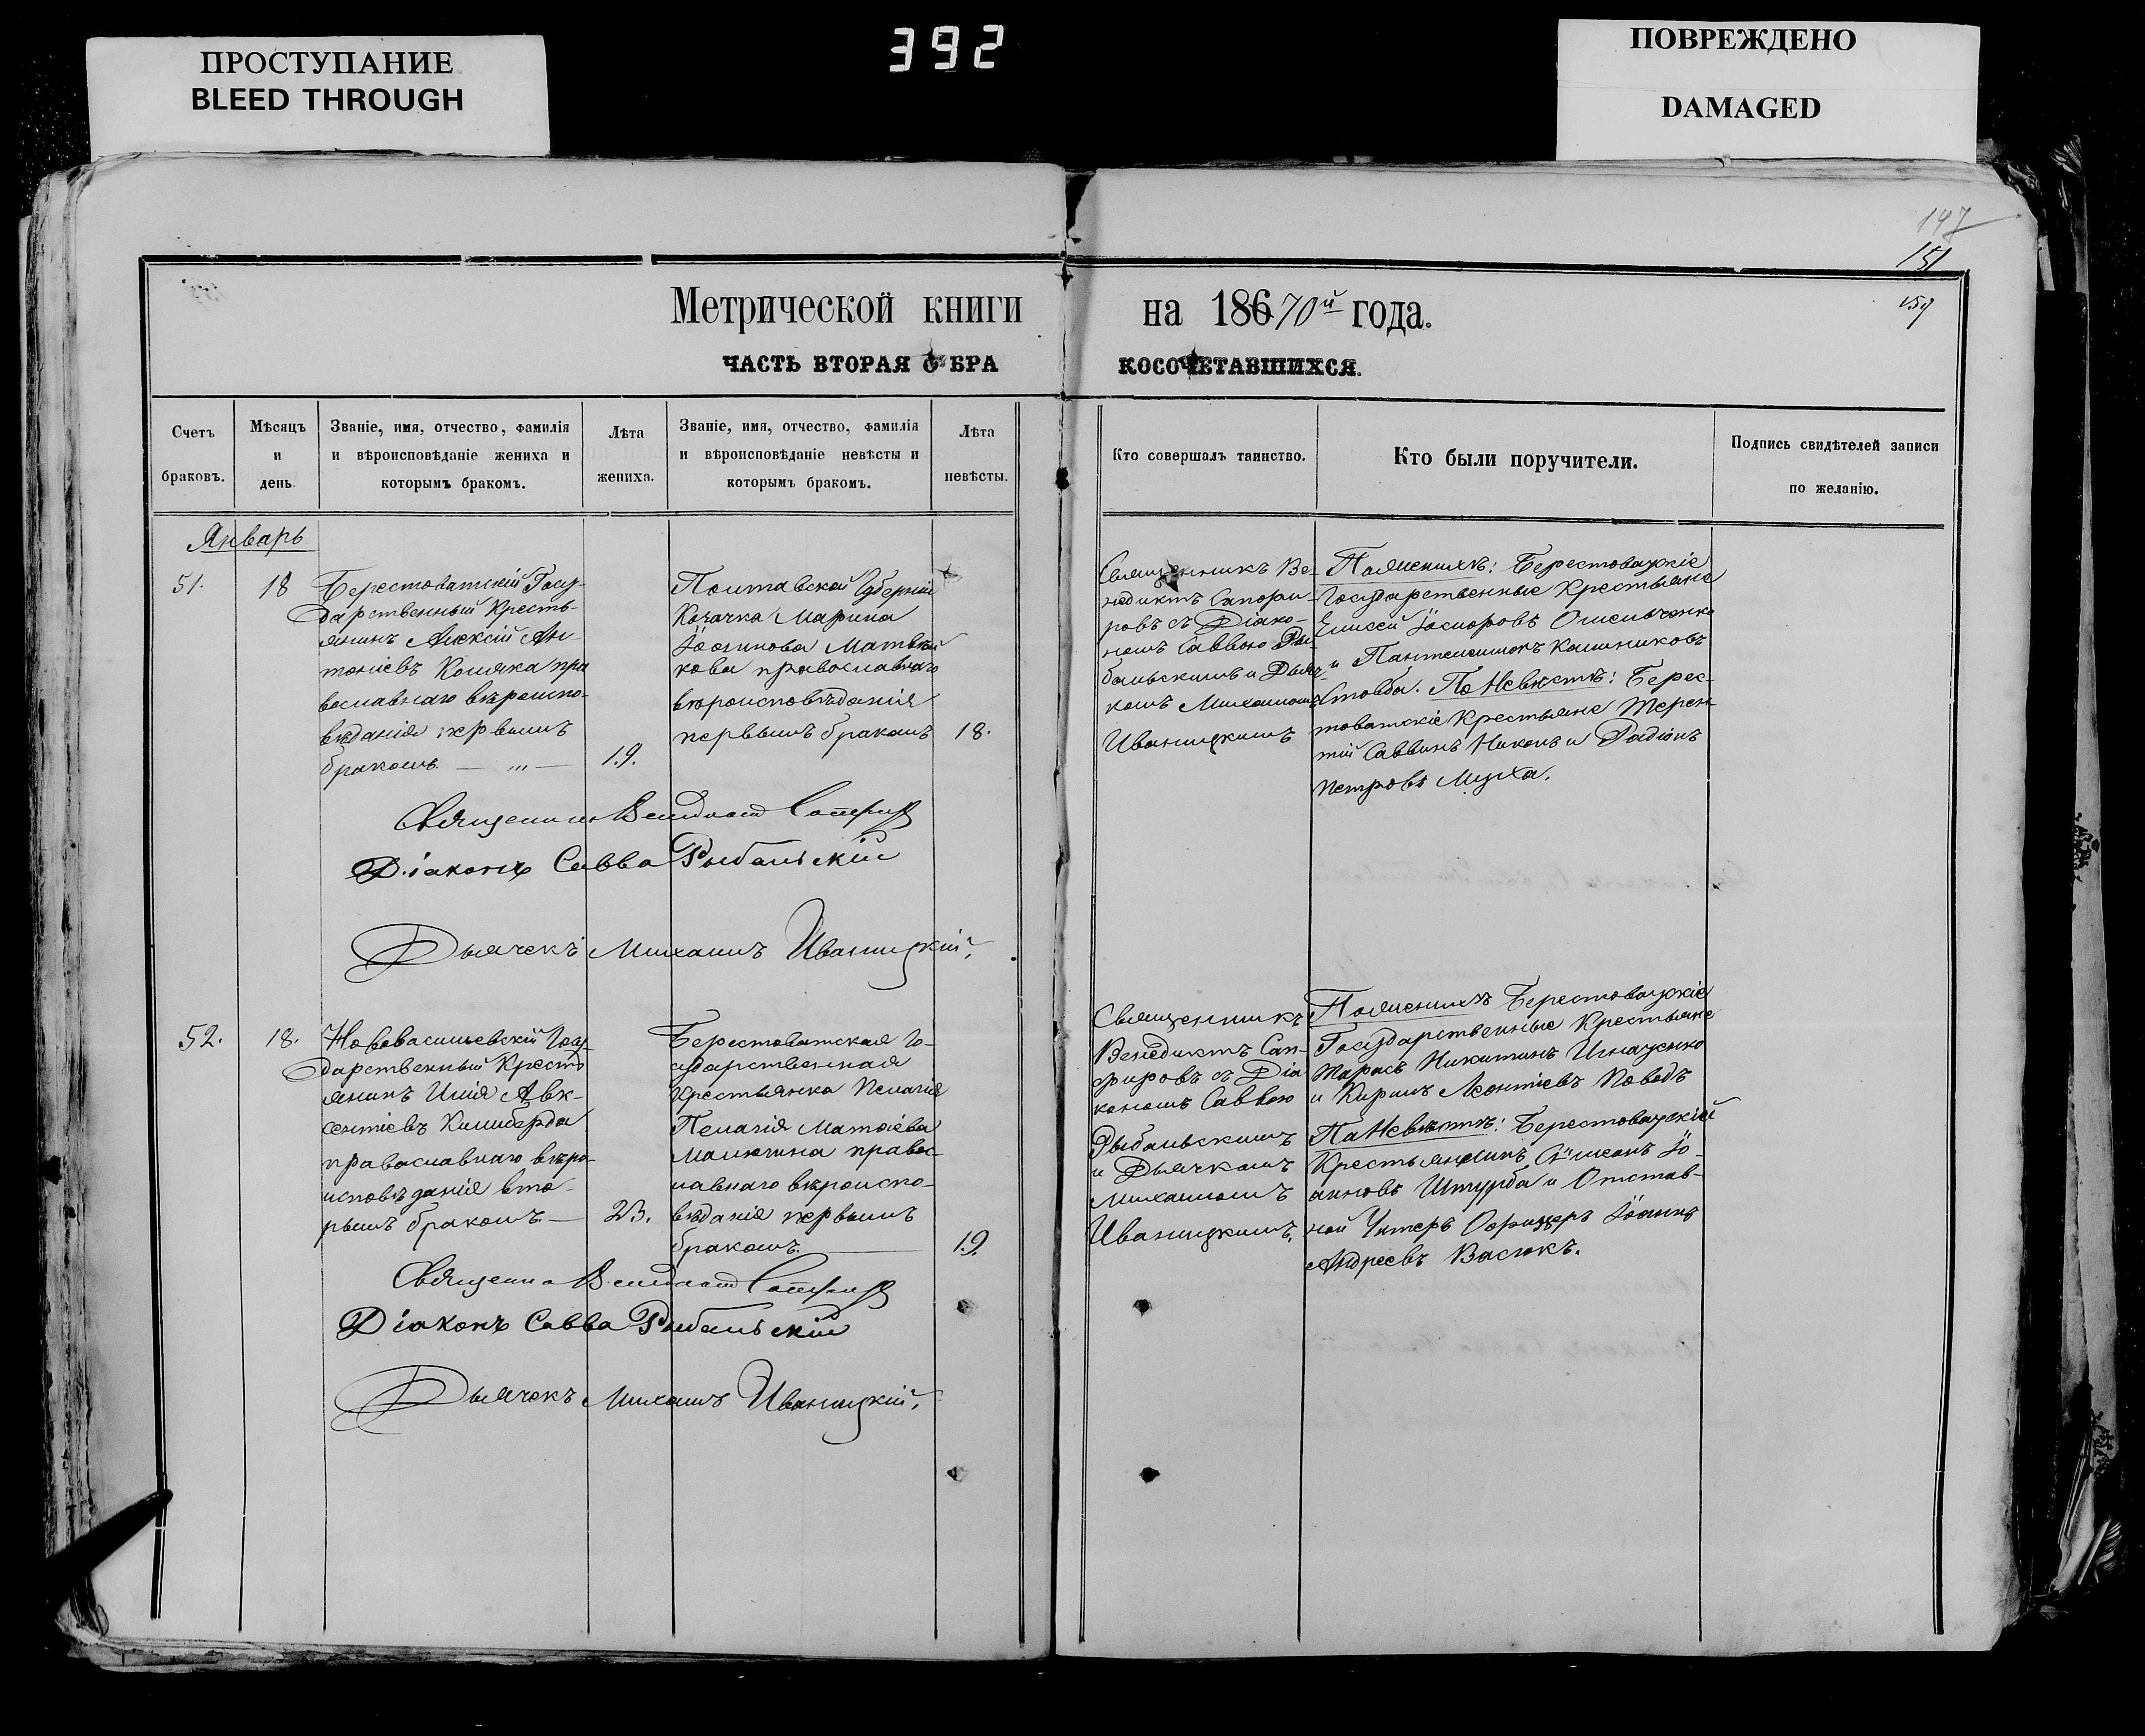 ПРОСТУПАНИЕ
BLEED THROUGH
392
ПОВРЕЖДЕНО
DAMAGED
147
151
159
Метрической книги на 18670й года.
ЧАСТЬ ВТОРАЯ О БРАКОСОЧЕТАВШИХСЯ.
Счетъ
браковъ.
Мѣсяцъ
и
день.
Званіе, имя, отчество, фамилія
и вѣроисповѣданіе жениха и
которымъ бракомъ.
Лѣта
жениха.
Званіе, имя, отчество, фамилія
и вѣроисповѣданіе невѣсты и
которымъ бракомъ.
Лѣта
невѣсты.
Кто совершалъ таинство.
Кто были поручители.
Подпись свидѣтелей записи
по желанію.
Январь
51.
18
Берестоватскій Госу-
дарственный Кресть-
янинъ Алексій Ан-
тоніевъ Коляка пра
вославнаго вѣроиспо-
вѣданія первымъ
бракомъ. — „ —
19.
Полтавской Губерніи
Козачка Марина
Іосифова
кова православнаго
вѣроисповѣданія
первымъ бракомъ
18.
Священникъ Ве-
недиктъ Сапфи-
ровъ съ Діако-
номъ Саввою Ры-
бальскимъ и Дьяч-
комъ Михаиломъ
Иваницкимъ
По женихѣ: Берестовацкіе
Государственные Крестьяне
Елисей
и Пантелеимонъ Калиниковъ
Стовба. По Невѣстѣ: Берес-
товатскіе Крестьяне Терен-
тій Саввинъ и Радіонъ
Петровъ Муха.
Священни Венедиктъ Сапфир
Діаконъ Савва Рыбальскій
Дьячекъ Михаилъ Иваницкій.
52.
18.
Нововасильевскій Госу-
дарственный Кресть
янинъ Илія Авк-
сентіевъ Килиберда
православнаго вѣро-
исповѣданія вто-
рымъ бракомъ. —
23.
Берестоватская Го-
сударственная
Крестьянка Пелагія
Пелагія Матѳіева
Малюгина правос-
лавнаго вѣроиспо-
вѣданія первымъ
бракомъ.
19.
Священникъ
Венедиктъ Сап-
фировъ съ Діа
кономъ Саввою
Рыбальскимъ
и Дьячкомъ
Михаиломъ
Иваницкимъ.
По женихѣ Берестовацкіе
Государственные Крестьяне
Тарасъ Никитинъ Игнаценко
и Кирилъ Леонтіевъ Поводъ
По Невѣстѣ: Берестовацкій
Крестьянинъ Сѵмеонъ Іо-
анновъ Штурба и Отстав-
ной Унтеръ Офицеръ Іоаннъ
Андреевъ Васюкъ.
Священни Венедиктъ Сапфир
Діаконъ Савва Рыбальскій
Дьячекъ Михаилъ Иваницкій.